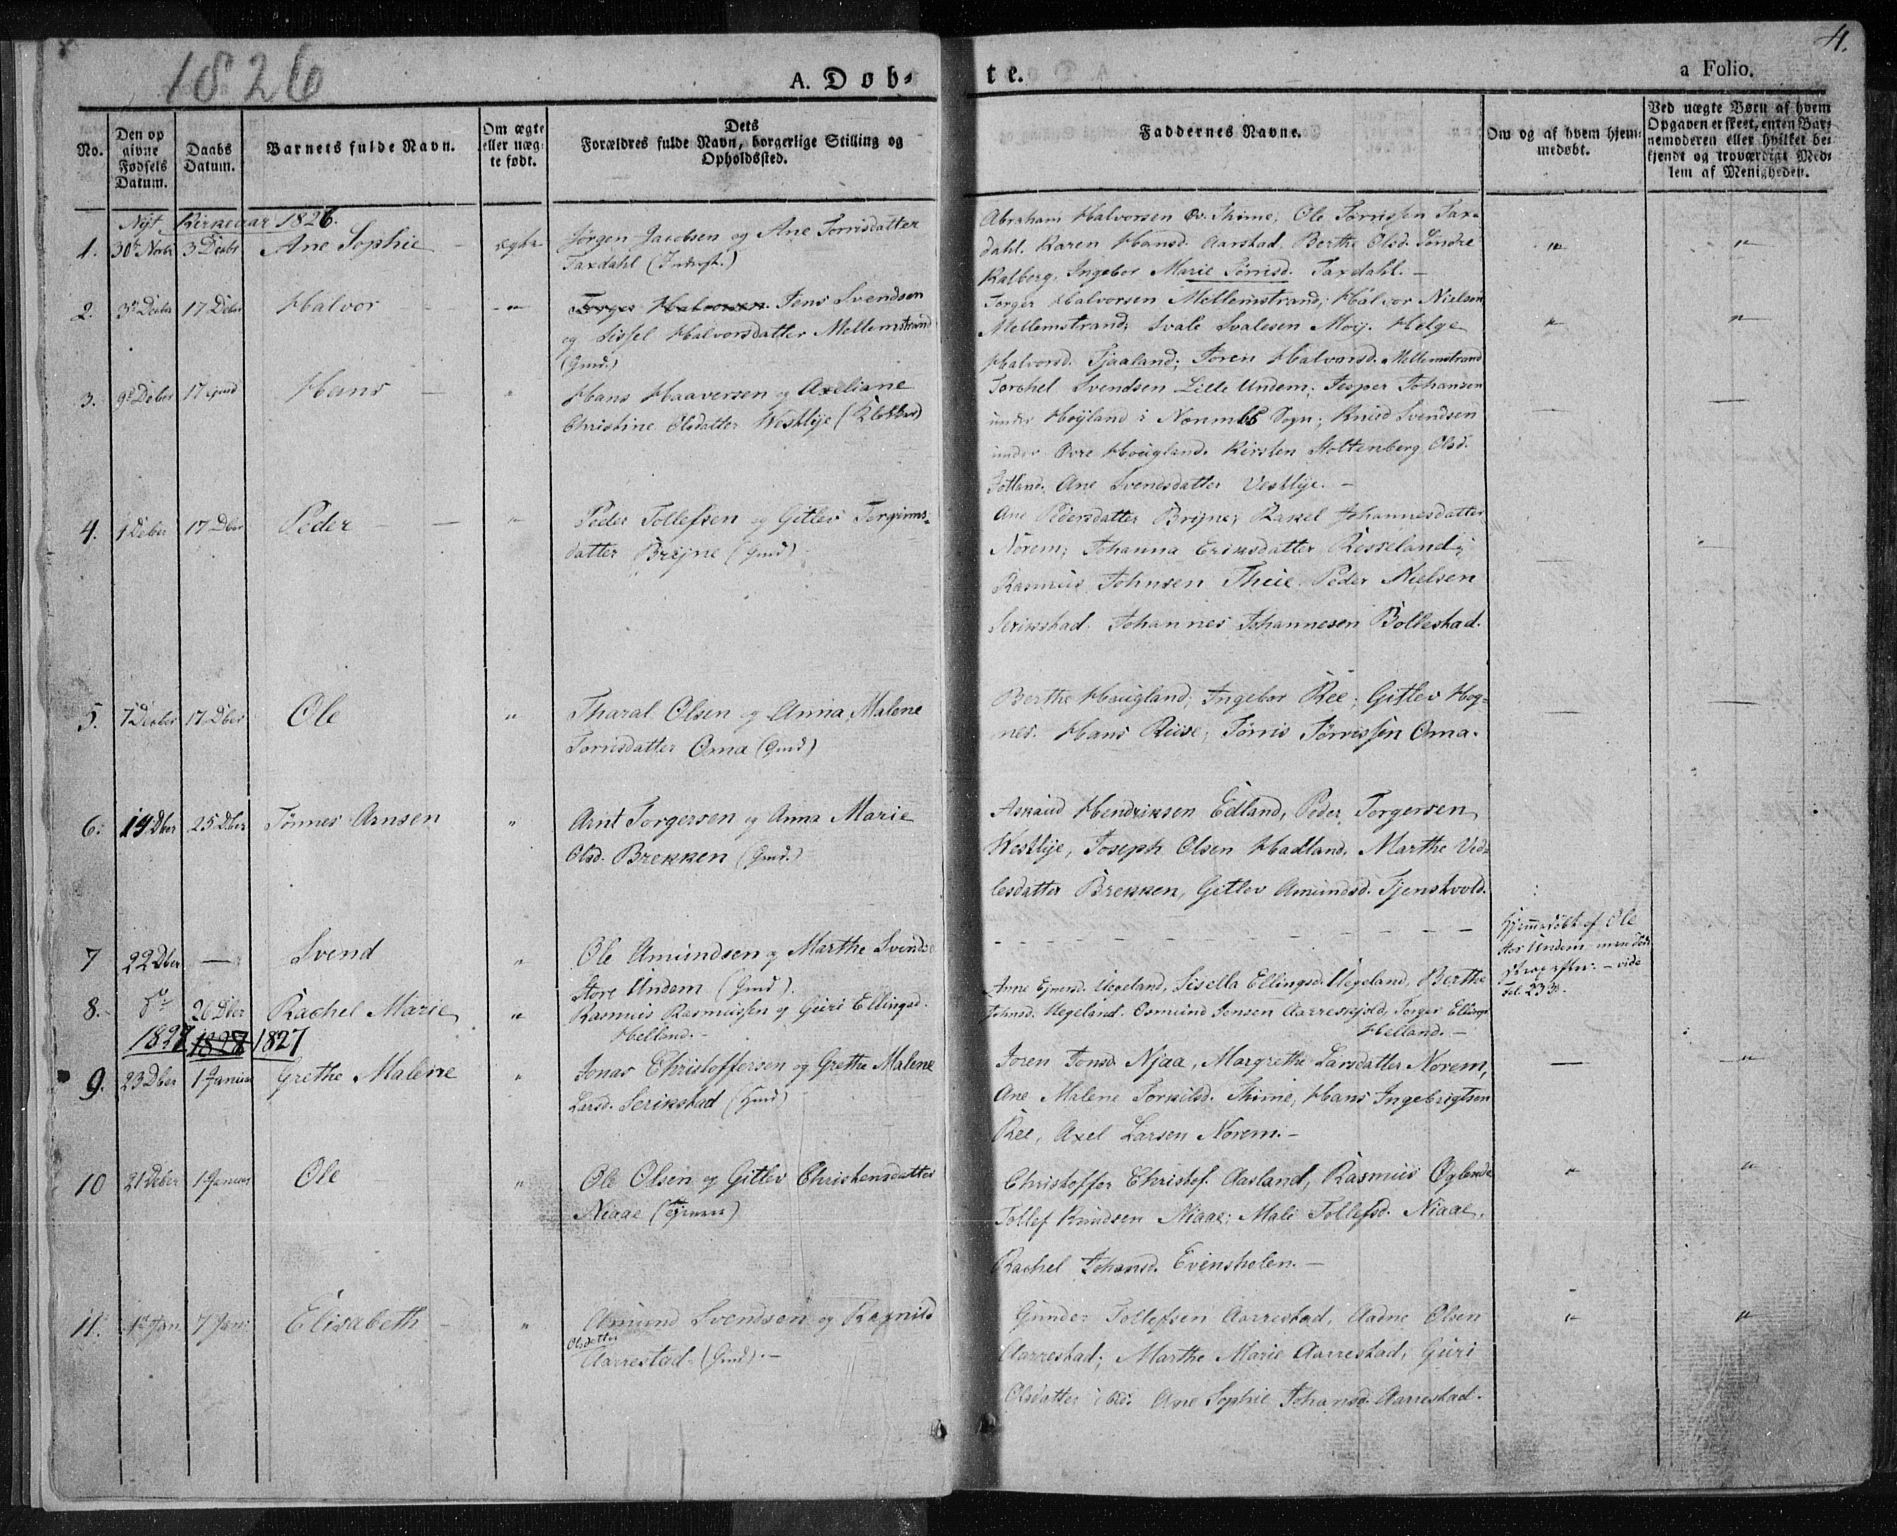 1826
A. Døb-
te.
a Folio.
4.
No.
Den op
givne
Fødsels
Datum.
Daabs
Datum.
Barnets fulde Navn.
Om ægte
eller næg-
te født.
Dets
Forældres fulde Navn, borgerlige Stilling og
Opholdssted.
Faddernes Navne.
Om og af hvem hjem-
medøbt.
Ved uægte Børn af hvem
Opgaven er skeet, enten Bar-
nemoderen eller hvilket be-
kjendt og troværdigt Med-
lem af Menigheden.
Nÿt Kirkeaar 1826.
1. 30te Novbr 3 Decbr Ane Sophie - ægte
Jørgen Jacobsen og Ane Torrisdatter
Taxdahl
Abraham Halvorsen Ov. Thime, Ole Tørrissen Tax-
dahl. Karen Hansd. Aarstad, Berthe Olsd. Søndre
Kalberg, Ingebor Marie Tørrisd. Taxdahl. -
2. 3de Decbr 17 Debr Halvor - - "
Torger Halvorsen Jens Svendsen
og Sissel Halvorsdatter Mellemstrand
(Gmd.)
Torger Halvorsen Mellemstrand, Halvor Nielsen
Mellemstrand; Svale Svalesen Moÿ. Helge
Halvorsd. Tjaaland; Toren Halvorsd. Mellemstrand
3. 9de Deber 17 ejusd Hans - "
Hans Haaversen og Axeliane
Christine Olsdatter Westlÿe
Torchel Svendsen Lille Undem; Jesper Johansen
under Høÿland i Sogn; Knud Svendsen
under Øvre Hougland. Kirsten Stoltenberg Olsd.
Ane Svendsdatter Vestlÿe. -
4. 1 Deber 17 Dbr Peder - "
Peder Tollefsen og Gitlev Torgrims-
datter Brÿne (Gmd)
Ane Pedersdatter Brÿne, Rakel Johannesdatter
Norem; Johanna Eriksdatter Rosseland;
Rasmus Johnsen Thue. Peder Nielsen
Serikstad. Johannes Johannesen Bollestad.
5. 7 Decbr 17 Dber Ole "
Tharal Olsen og Anna Malene
Torrisdatter Oma (Gmd)
Berthe Hougland; Ingebor Ree; Gitlev Hog-
nes. Hans Riise; Tørris Tørrissen Oma.
6. 14 Dber 25 Dber Tønnes Arnsen "
Arnt Torgersen og Anna Marie
Olsd. Brekken (Gmd.)
Askaud Hendriksen Edland, Peder Torgersen
Westlÿe, Joseph Olsen Hadland. Marthe Ved-
lesdatter Brekken, Gitlev Amundsd. Tjenskvold.
7 22 Dber - Svend "
Ole Amundsen og Marthe Svendsd
Store Undem (Gmd).
Hjemmedøbt af Ole
Store Undem men døde
strax efter - vide
Fol. 233.
8. do 26 Dber Rachel Marie "
Rasmus Rasmussen og Guri Ellingsd.
Helland. -
Anne Ejversd. Uegeland, Sisella Ellingsd. Uegeland, Berthe
Johnsd. Uegeland. Osmund Jonsen Aarreskjold, Torger Ellings
Helland. -
1827 1827 1827
9. 23 Dber 1 Januar Grethe Malene "
Jonas Christoffersen og Grethe Malene
Larsd. Serikstad (Gmd)
Joren Jonsd. Njaa, Margrethe Larsdatter Norem,
Ane Malene Torkilsd. Thime, Hans Ingebrigtsen
Ree, Axel Larsen Norem. -
10 21 Deber 1 Januar Ole "
Ole Olsen og Gitlev Christensdatter
Niaae
Christoffer Christof. Aasland, Rasmus Øglende
Tollef Knudsen Niaae; Mali Tollefsd. Niaae.
Rachel Johansd. Evensholen. -
11. 1te Jan. 7 Jan. Elisabeth - "
Amund Svendsen og Ragnild
Olsdatter
Aarrestad. (Gmd). -
Gunder Tollefsen Aarrestad, Aadne Olsen
Aarrestad; Marthe Marie Aarrestad, Guri
Olsdatter ibid. Ane Sophie Johansd. Aarrestad.